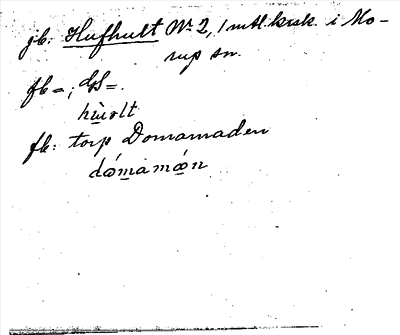 jb: Hufhult Nr 2, 1 mtl. krsk. i Mo-
rup sn.
fb =; GS =.
hùvolt
fb: torp Domarmaden
dómamón